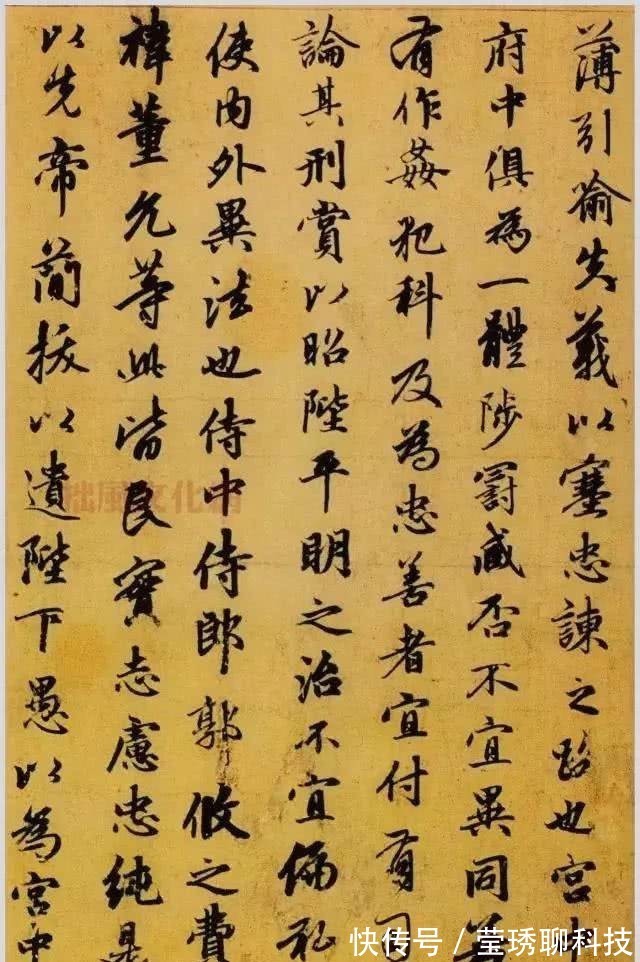 薄引喻失義以塞忠諫之路也宮中
府中俱為一體陟罰臧否不宜異同若
有作姦犯科及為忠善者宜付有司
論其刑賞以昭陛平明之治不宜偏私
使內外異法也侍中侍郎郭攸之費
禕董允等此皆良實志慮忠純是
以先帝簡拔以遺陛下愚以為宮中
拙風文化網
快传号 / 莹琇聊科技